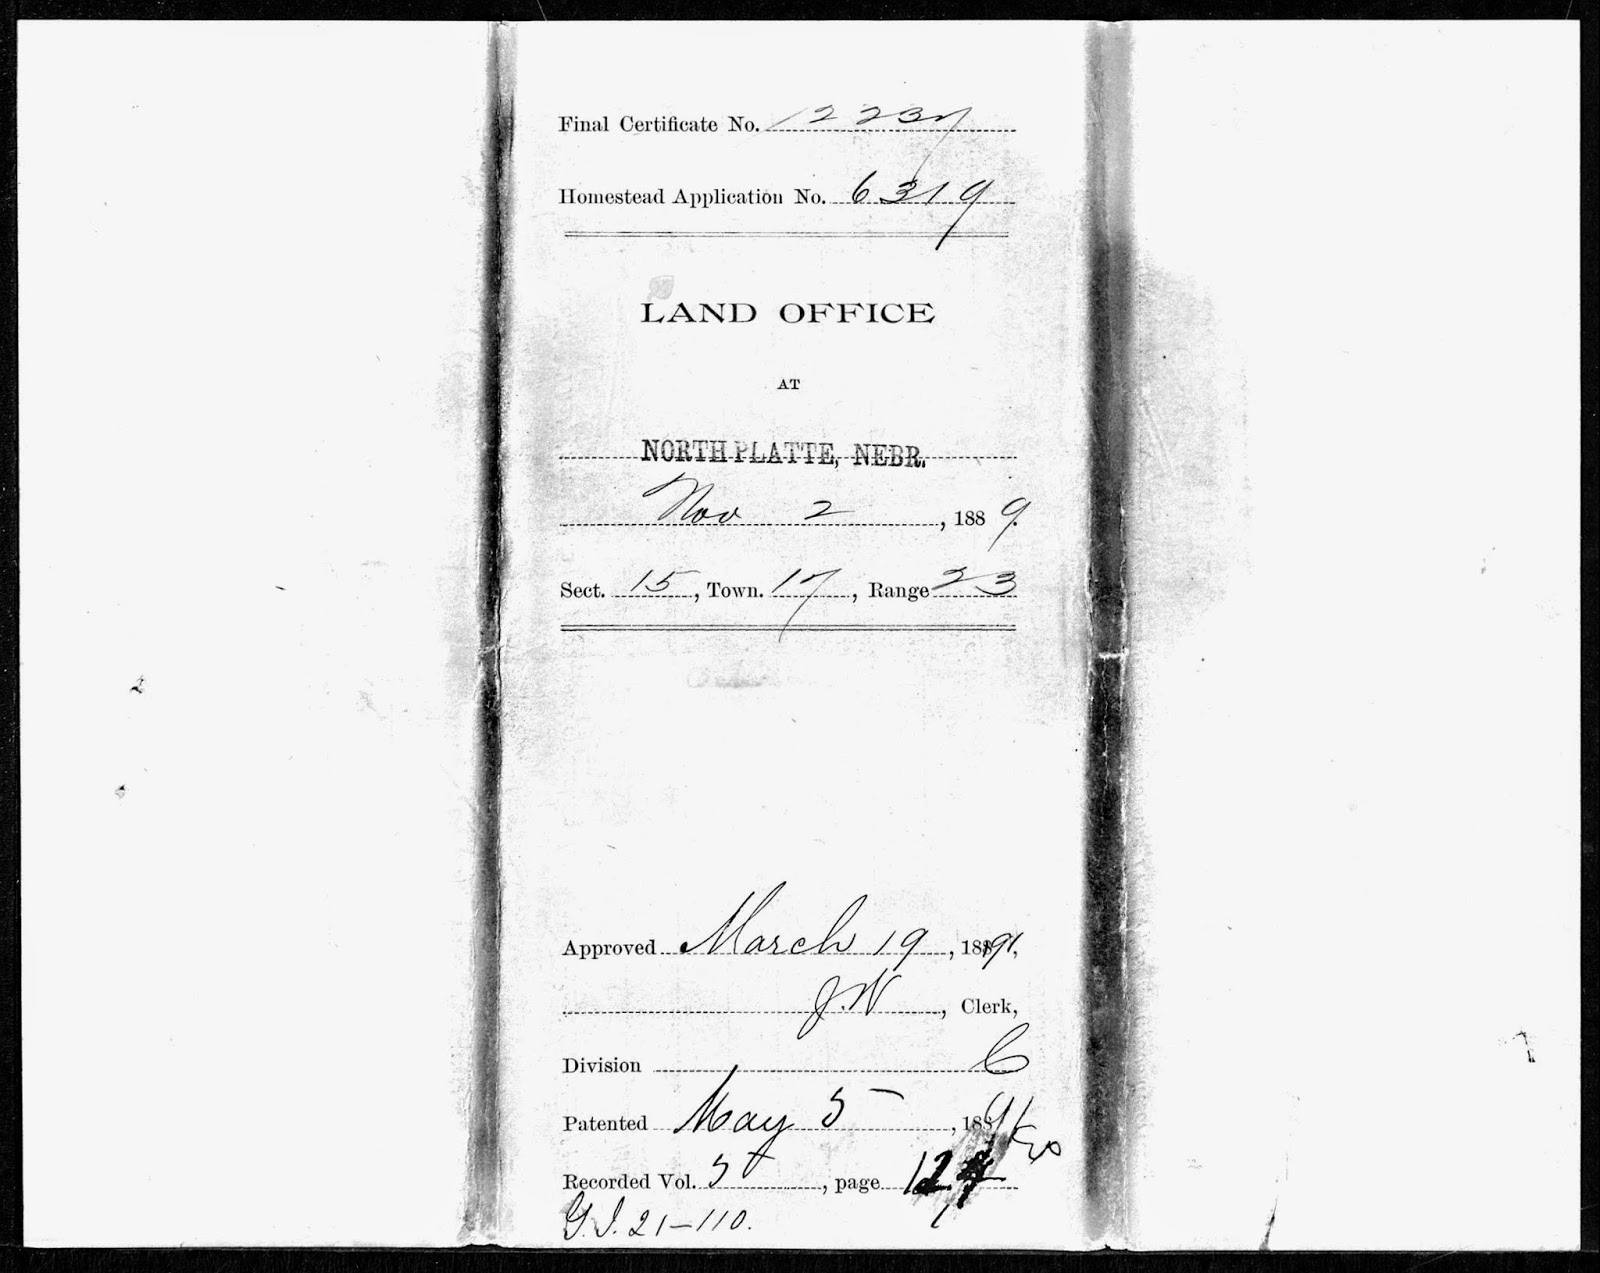 Final Certificate No. 12237
Homestead Application No. 6319
LAND OFFICE
AT
NORTH PLATTE, NEBR.
Nov 2, 1889.
Sect. 15, Town. 17, Range 23
Approved March 19, 1891,
J.W, Clerk,
Division C
Patented May 5, 1891
Recorded Vol. 5, page
G.I. 21-110.